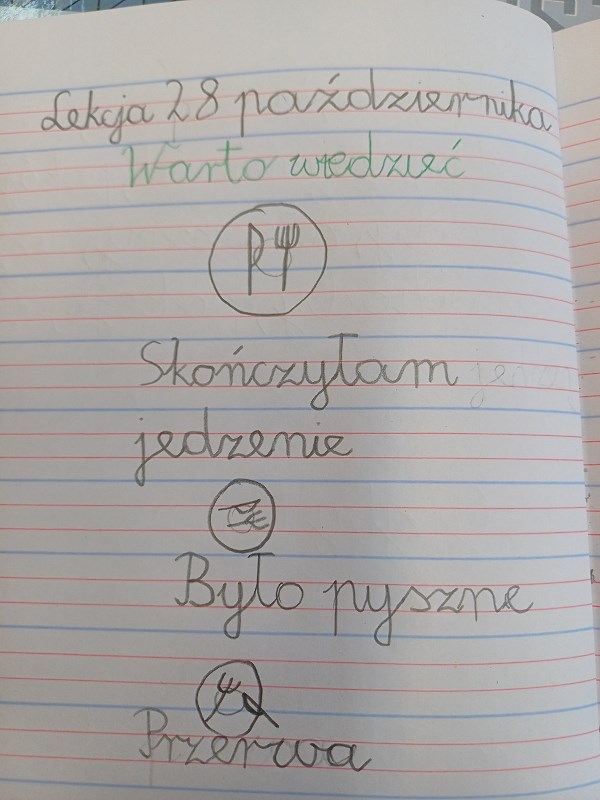 Lekcja 28 października
Warto wiedzieć
Skończyłam
jedzenie
Było pyszne
Przerwa